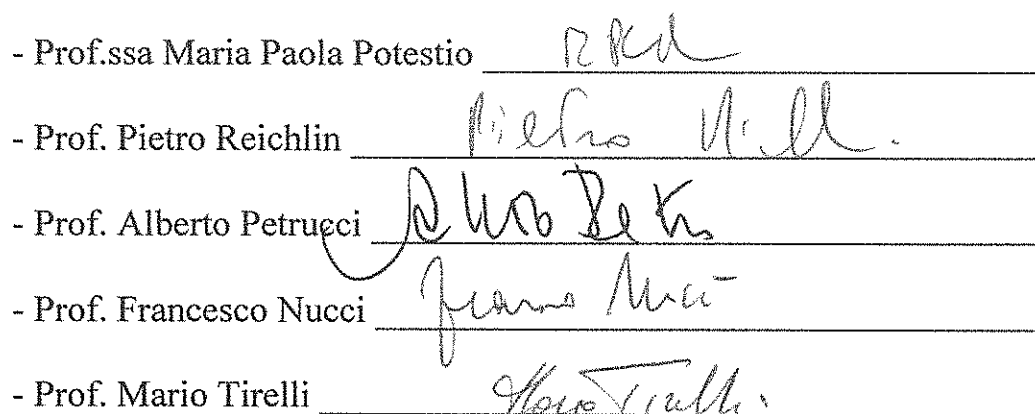 - Prof.ssa Maria Paola Potestio
- Prof. Pietro Reichlin Pietro
- Prof. Alberto Petrucci
- Prof. Francesco Nucci
- Prof. Mario Tirelli Mario Tirelli